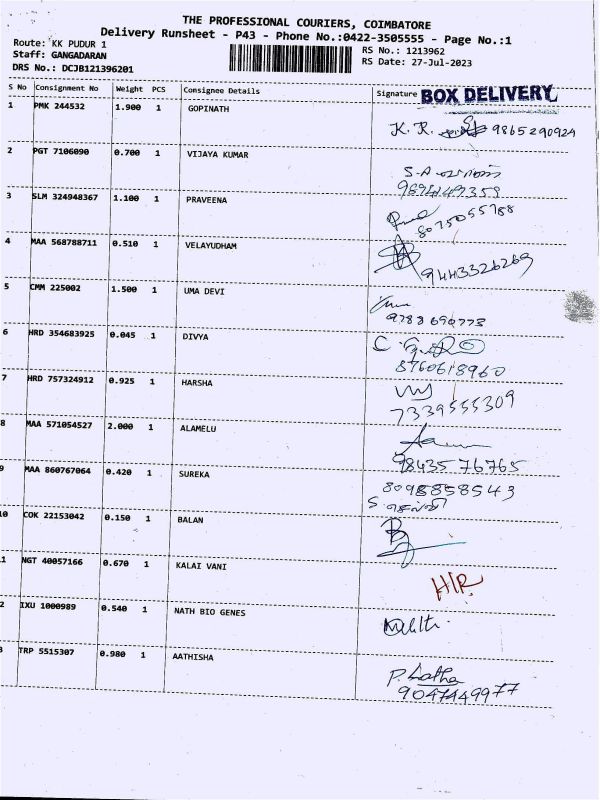 THE PROFESSIONAL COURIERS, COIMBATORE
Delivery Runsheet - P43 - Phone No.:0422-3505555 - Page No.:1
Route: KK PUDUR 1 RS No.: 1213962
Staff: GANGADARAN RS Date: 27-Jul-2023
DRS No.: DCJB121396201
S No Consignment No Weight PCS Consignee Details Signature BOX DELIVERY
1 PMK 244532 1.900 1 GOPINATH
K. R. 9865290924
2 PGT 7106090 0.700 1 VIJAYA KUMAR
S-A
9694149359
3 SLM 324948367 1.100 1 PRAVEENA
8075055788
4 MAA 568788711 0.510 1 VELAYUDHAM
9443326269
5 CMM 225002 1.500 1 UMA DEVI
9788690773
6 HRD 354683925 0.045 1 DIVYA
8760618960
7 HRD 757324912 0.925 1 HARSHA
7339555309
8 MAA 571054527 2.000 1 ALAMELU
9843576765
9 MAA 860767064 0.420 1 SUREKA
8098858543
10 COK 22153042 0.150 1 BALAN
1 NGT 40057166 0.670 1 KALAI VANI
H/R
2 IXU 1000989 0.540 1 NATH BIO GENES
3 TRP 5515307 0.980 1 AATHISHA
P. Latha
9047449977